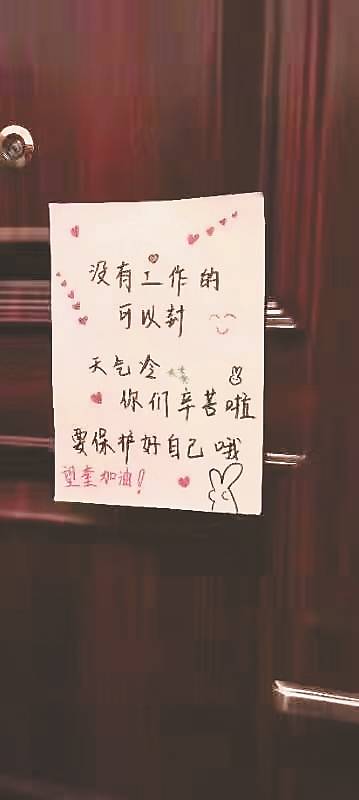 没有工作的
可以封
天气冷
你们辛苦啦
要保护好自己哦
望奎加油！